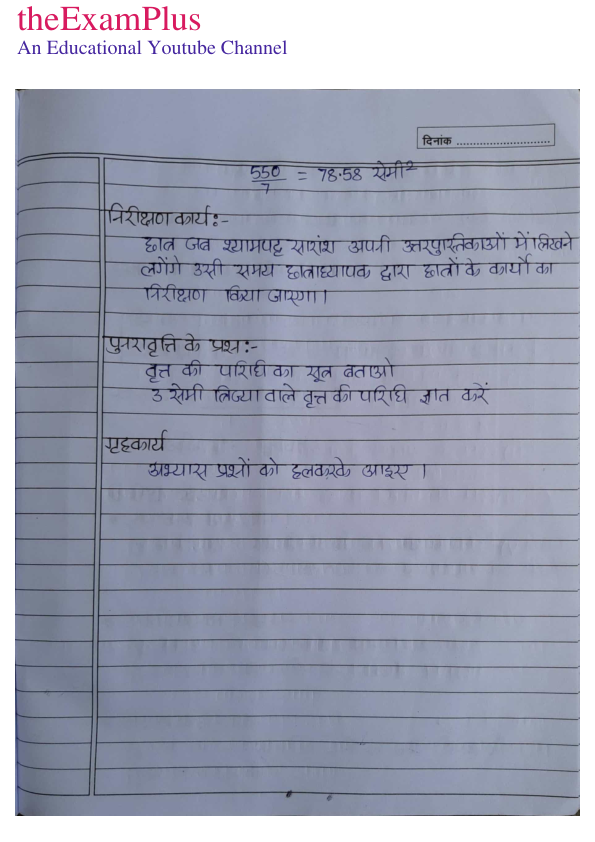 theExamPlus
An Educational Youtube Channel
दिनांक ..............................
550/7 = 78.58 सेमी²
निरीक्षण कार्य:-
छात्र जब श्यामपट्ट सारांश अपनी उत्तरपुस्तिकाओं में लिखने
लगेंगे उसी समय छात्राध्यापक द्वारा छात्रों के कार्यो का
निरीक्षण किया जाएगा।
पुनरावृत्ति के प्रश्न:-
वृत्त की परिधि का सूत्र बताओ
3 सेमी त्रिज्या वाले वृत्त की परिधि ज्ञात करें
गृहकार्य
अभ्यास प्रश्नों को हलकरके आइए ।